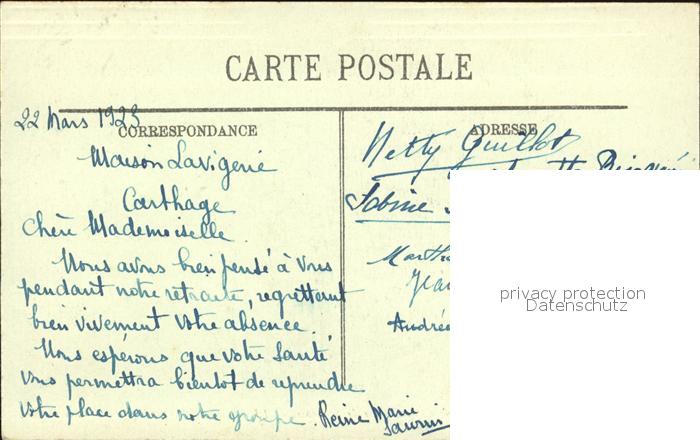 CARTE POSTALE
22 Mars 1923
CORRESPONDANCE
Maison Lavigerie
Carthage
Chère Mademoiselle.
Nous avons bien pensé à vous
pendant notre retraite, regrettant
bien vivement votre absence.
Nous espérons que votre santé
vous permettra bientôt de reprendre
votre place dans notre groupe. Reine Marie
ADRESSE
Netty Guillot
Sabine
Andrée
privacy protection
Datenschutz